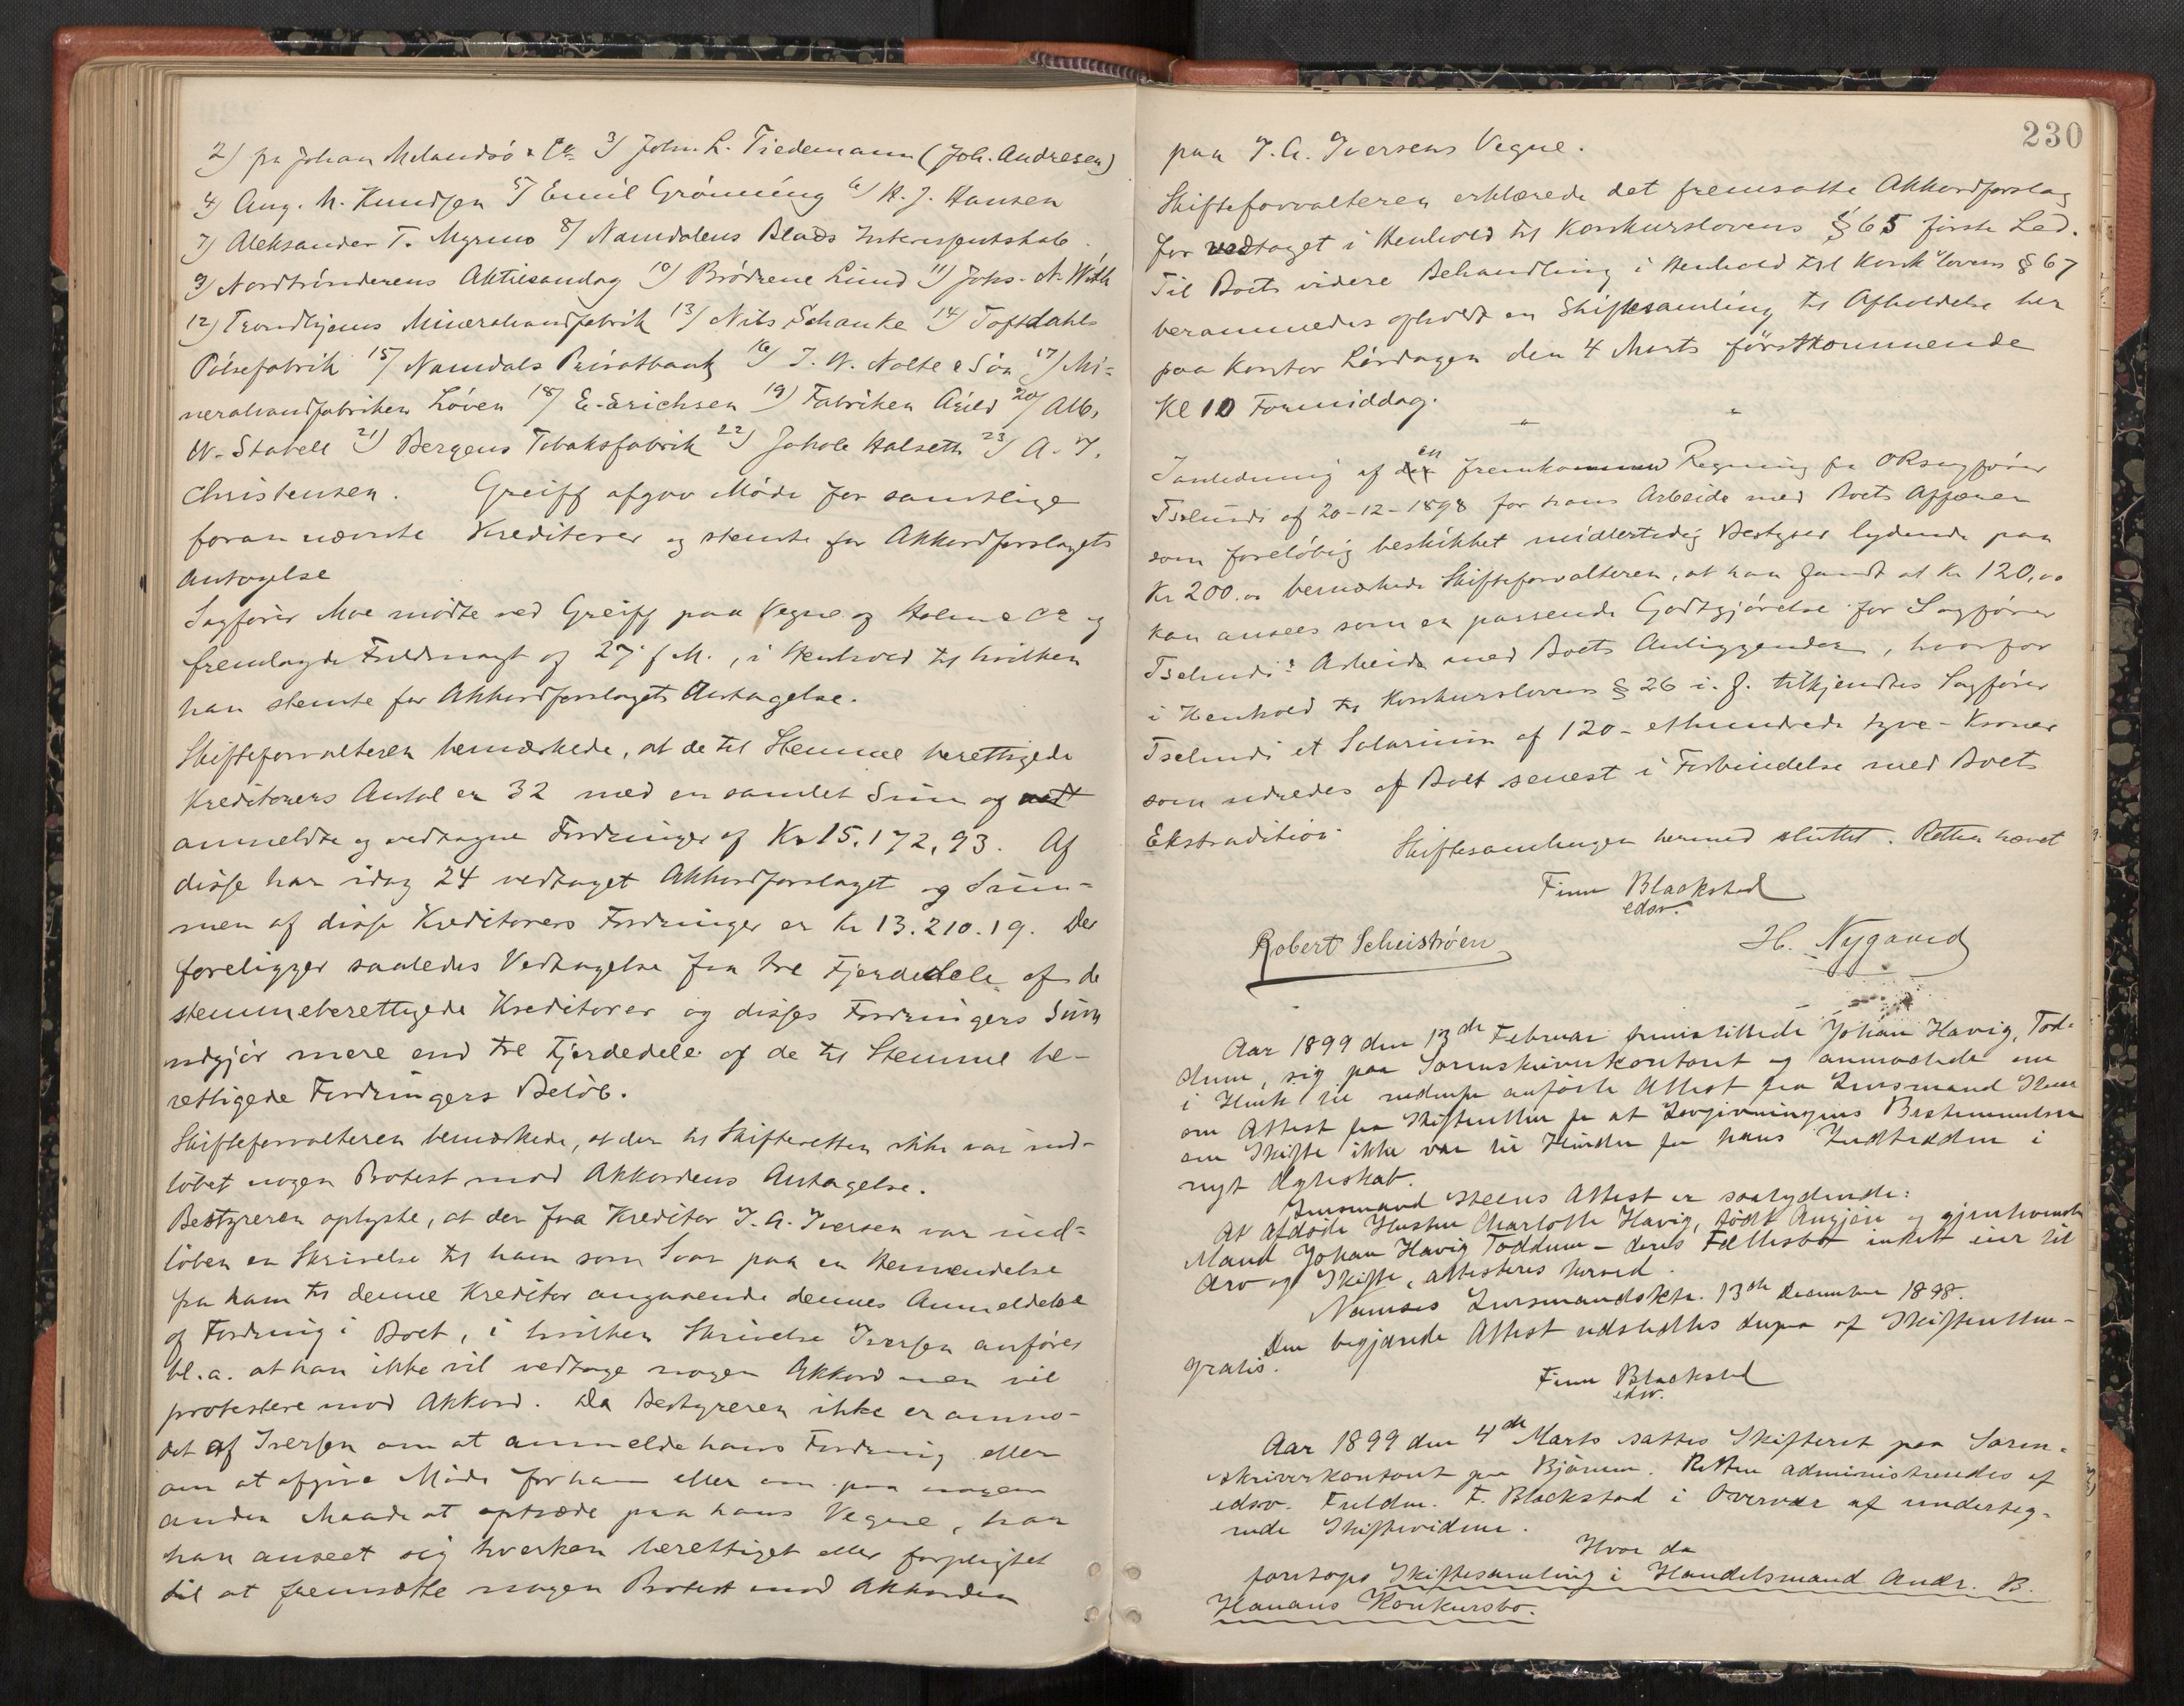 2) fra Johan Melandsö & Co 3) Joh. L. Tiedemann (Joh. Andresen)
4) Aug. M. Knudsen 5) Emil Grönning 6) H. J. Hansen
7) Aleksander T. Myrmo 8) Namdalens Blads Interessentskab.
9) Nordtrönderens Aktieandag 10) Brödrene Lund 11) Johs. N. With
12) Trondhjems Mineralvandfabrik 13) Nils Schanke 14) Toftdahls
Pölsefabrik 15) Namdals Privatbank 16) J. W. Nolte & Sön 17) Mi-
neralvandfabriken Löven 18) E. Erichsen 19) Fabriken Arild 20) Alb.
W. Stabell 21) Bergens Tobaksfabrik 22) Jakob Halseth 23) A. J.
Christensen. Greiff afgav Möde for samtlige
forannævnte Kreditorer og stemte for Akkordforslagets
Antagelse
Sagförer Moe mödte ved Greiff paa Vegne af Holm & Co og
fremlagde Fuldmagt af 27 f. M., i Henhold til hvilken
han stemte for Akkordforslagets Antagelse.
Skifteforvalteren bemærkede, at de til Stemme berettigede
Kreditorers Antal er 32 med en samlet Sum af
anmeldte og vedtagne Fordringer af Kr 15.172,93. Af
disse har idag 24 vedtaget Akkordforslaget og Sum-
men af disse Kreditorers Fordringer er Kr 13.210.19. Der
foreligger saaledes Vedtagelse fra tre Fjerdedele af de
stemmeberettigede Kreditorer og disses Fordringers Sum
udgjör mere end tre Fjerdedele af de til Stemme be-
rettigede Fordringers Belöb.
Skifteforvalteren bemærkede, at der til Skifteretten ikke var ind-
löbet nogen Protest mod Akkordens Antagelse.
Bestyreren oplyste, at der fra Kreditor J. A. Iversen var ind-
löben en Skrivelse til ham som Svar paa en Henvendelse
fra ham til denne Kreditor angaaende dennes Anmeldelse
af Fordring i Boet, i hvilken Skrivelse Iversen anförer
bl.a. at han ikke vil vedtage nogen Akkord men vil
protestere mod Akkord. Da Bestyreren ikke er anmo-
det af Iversen om at anmelde hans Fordring eller
om at afgive Möde for ham eller om paa nogen
anden Maade at optræde paa hans Vegne, har
han anseet sig hverken berettiget eller forpligtet
til at fremsætte nogen Protest mod Akkorden
230
paa J. A. Iversens Vegne.
Skifteforvalteren erklærede det fremsatte Akkordforslag
for vedtaget i Henhold til Konkurslovens § 65 förste Led.
Til Boets videre Behandling i Henhold til Konk.lovens § 67
berammedes en Skiftesamling til Afholdelse her
paa Kontor Lördagen den 4 Marts förstkommende
Kl 10 Formiddag.
I anledning af en fremkommen Regning fra ORsagförer
Tselundi af 20-12-1898 for hans Arbeide med Boets Affærer
som foreløbig beskikket midlertidig Bestyrer lydende paa
Kr 200.00 bemærkede Skifteforvalteren, at han fandt at Kr 120,00
kan ansees som en passende Godtgjörelse for Sagförer
Tselundis Arbeide med Boets Anliggender, hvorfor
i Henhold til Konkurslovens § 26 i. f. tilkjendtes Sagförer
Tselundi et Salarium af 120 - ethundrede tyve - Kroner
som udredes af Boet senest i Forbindelse med Boets
Ekstradition. Skiftesamlingen hermed sluttet. Retten hævet
Finn Blackstad
edsv.
Robert Scheiströen H. Nygaard
Aar 1899 den 13de Februar fremstillede Johan Havig, Tod-
dum, sig paa Sorenskriverkontoret og anmodede om
i Henh. til nedenfor anförte Attest fra Lensmand Steen
om Attest fra Skifteretten for at Lovgivningens Bestemmelser
om Skifte ikke var til Hinder for hans Indtræden i
nyt Ægteskab.
Lensmand Steens Attest er saalydende:
At afdöde Hustru Charlotte Havig, födt og gjenlevende
Mand Johan Havig Toddum - deres Fællesbo intet eier til
Arv og Skifte, attesteres herved.
Namsos Lensmandsktr. 13de December 1898.
Den begjærede Attest udstedtes derpaa af Skifteretten -
gratis.
Finn Blackstad
edsv.
Aar 1899 den 4de Marts sattes Skifteret paa Soren-
skriverkontoret paa Bjørum. Retten administreredes af
edsv. Fuldm. F. Blackstad i Overvær af underteg-
nede Skiftevidner.
Hvor da
foretoges Skiftesamling i Handelsmand Andr. B.
Hanans Konkursbo.